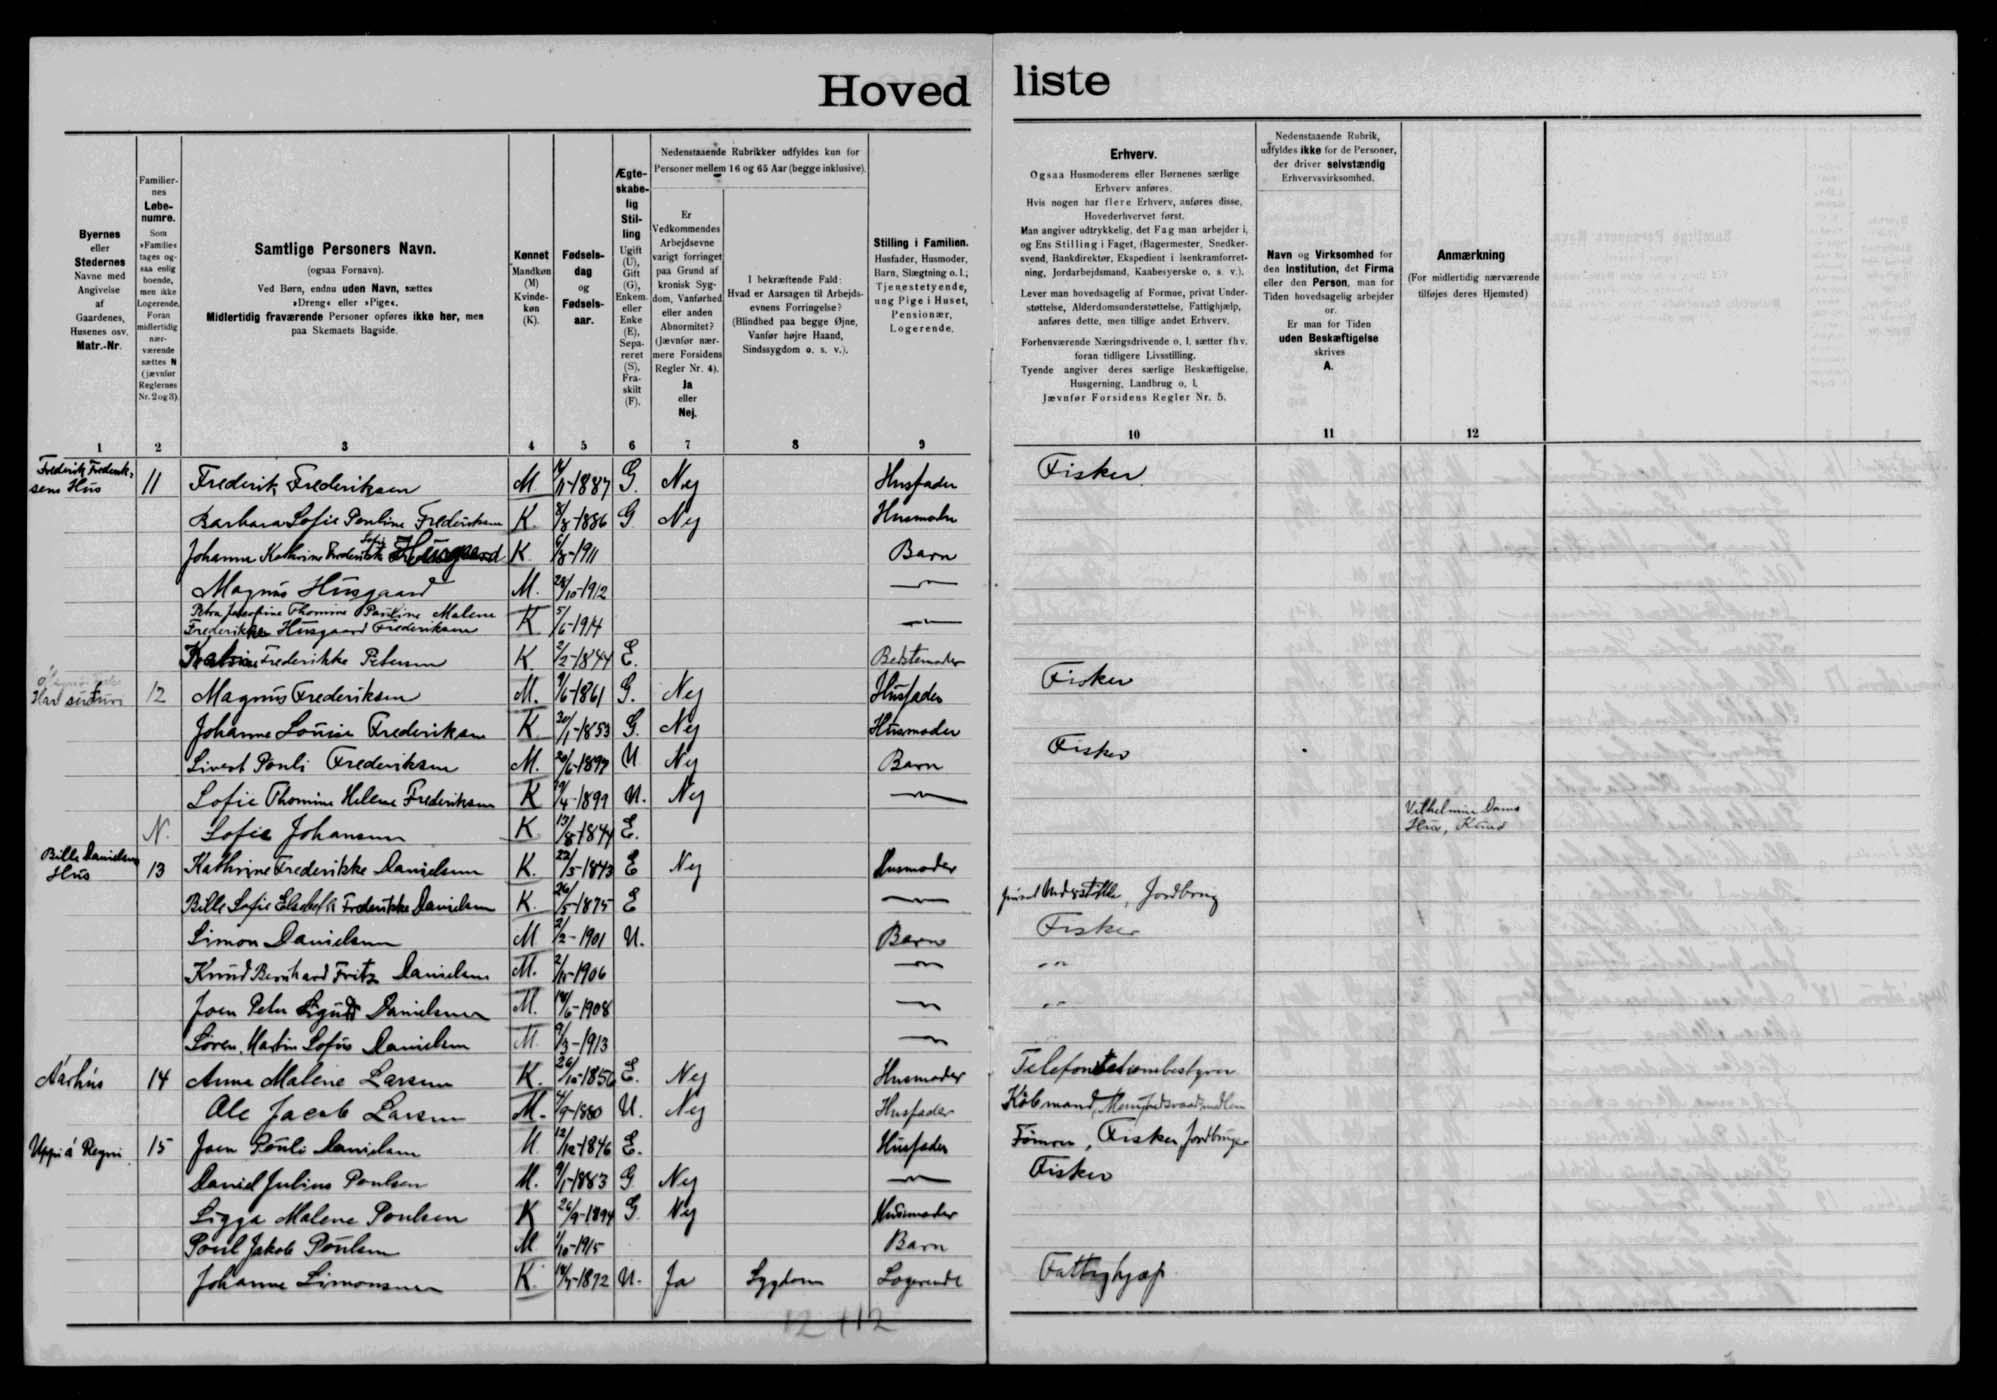 Hovedliste
Byernes
eller
Stedernes
Navne med
Angivelse
af
Gaardenes,
Husenes osv.
Matr.-Nr.
Familier-
nes
Løbe-
numre.
Som
»Familie«
tages og-
saa enlig
boende,
men ikke
Logerende.
Foran
midlertidig
nær-
værende
sættes N
(jævnfør
Reglernes
Nr. 2 og 3).
Samtlige Personers Navn.
(ogsaa Fornavn).
Ved Børn, endnu uden Navn, sættes
»Dreng« eller »Pige«.
Midlertidig fraværende Personer opføres ikke her, men
paa Skemaets Bagside.
Kønnet
Mandkøn
(M)
Kvinde-
køn
(K).
Fødsels-
dag
og
Fødsels-
aar.
Ægte-
skabe-
lig
Stil-
ling
Ugift
(U),
Gift
(G),
Enkem.
eller
Enke
(E),
Sepa-
reret
(S),
Fra-
skilt
(F).
Nedenstaaende Rubrikker udfyldes kun for
Personer mellem 16 og 65 Aar (begge inklusive).
Er
Vedkommendes
Arbejdsevne
varigt forringet
paa Grund af
kronisk Syg-
dom, Vanførhed
eller anden
Abnormitet?
(Jævnfør nær-
mere Forsidens
Regler Nr. 4).
Ja
eller
Nej.
I bekræftende Fald:
Hvad er Aarsagen til Arbejds-
evnens Forringelse?
(Blindhed paa begge Øjne,
Vanfør højre Haand,
Sindssygdom o. s. v.).
Stilling i Familien.
Husfader, Husmoder,
Barn, Slægtning o. l.;
Tjenestetyende,
ung Pige i Huset,
Pensionær,
Logerende.
Erhverv.
Ogsaa Husmoderens eller Børnenes særlige
Erhverv anføres.
Hvis nogen har flere Erhverv, anføres disse,
Hovederhvervet først.
Man angiver udtrykkelig, det Fag man arbejder i,
og Ens Stilling i Faget, (Bagermester, Snedker-
svend, Bankdirektør, Ekspedient i Isenkramforret-
ning, Jordarbejdsmand, Kaabesyerske o. s. v.).
Lever man hovedsagelig af Formue, privat Under-
støttelse, Alderdomsunderstøttelse, Fattighjælp,
anføres dette, men tillige andet Erhverv.
Forhenværende Næringsdrivende o. l. sætter fhv.
foran tidligere Livsstilling.
Tyende angiver deres særlige Beskæftigelse,
Husgerning, Landbrug o. l.
Jævnfør Forsidens Regler Nr. 5.
Nedenstaaende Rubrik,
udfyldes ikke for de Personer,
der driver selvstændig
Erhvervsvirksomhed.
Navn og Virksomhed for
den Institution, det Firma
eller den Person, man for
Tiden hovedsagelig arbejder
for.
Er man for Tiden
uden Beskæftigelse
skrives
A.
Anmærkning
(For midlertidig nærværende
tilføjes deres Hjemsted)
1 2 3 4 5 6 7 8 9 10 11 12
Frederik Frederik-
sens Hus 11 Frederik Frederiksen M. 1887 G. Nej Husfader Fisker
Barbara Sofie Pouline Frederiksen K. 8/8-1886 G Nej Husmoder
Johanne Kathrine Husgaard K. 6/8-1911 Barn
Magnus Husgaard M. 1912 —"—
Petra Josefine Thomine Pauline Malene
Frederikke Husgaard Frederiksen K 5/6-1914 —"—
Frederikke Petersen K. 2/2-1844 E. Bedstemoder
12 Magnus Frederiksen M. 9/6-1861 G. Nej Husfader Fisker
Johanne Louise Frederiksen K 30/1-1853 G. Nej Husmoder
Sivert Pouli Frederiksen M. 20/6-1897 U Nej Barn Fisker
Sofie Thomine Helene Frederiksen K 4-1899 U. Nej —"—
N. Sofie Johansen K 13/8-1844 E. Vilhelmine Dams
Hus, Kunö
Bille Danielsens
Hus 13 Kathrine Frederikke Danielsen K. 22/5-1843 E Nej Husmoder
Bille Sofie Elsebeth Frederikke Danielsen K. 26/5-1875 E —"— Jordbrug
Simon Danielsen M 2/2-1901 U. Barn Fisker
Knud Bernhard Fritz Danielsen M. 1906 —"— -"-
Joen Peter Danielsen M. 6-1908 —"— -"-
Søren Martin Sofus Danielsen M 9/3-1913 —"—
Aarhús 14 Anna Malene Larsen K. 26/10-1856 E. Nej Husmoder Telefonstationsbestyrer
Ole Jacob Larsen M. 9-1880 U. Nej Husfader Købmand,
Uppi á Regni 15 Joen Pouli Danielsen M. 12/12-1846 E. Husfader Tømrer, Fisker, Jordbruger
David Julius Poulsen M. 9/1-1883 G Nej —"— Fisker
Sigga Malene Poulsen K 26/9-1894 G. Nej Husmoder
Poul Jakob Poulsen M 1/10-1915 Barn
Johanne Simonsen K. 1872 U. Ja Sygdom Logerende Fattighjælp
12 + 12